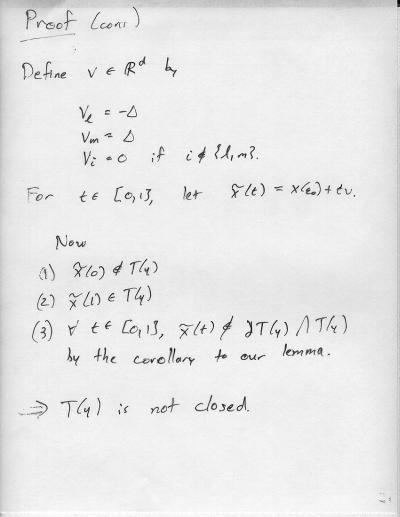 Proof (cont)
Define v ∈ ℝᵈ by
V_l = -Δ
V_m = Δ
V_i = 0 if i ∉ {l, m}.
For t ∈ [0,1], let x̃(t) = x(t₀) + tv.
Now
(1) x̃(0) ∉ T(y)
(2) x̃(1) ∈ T(y)
(3) ∀ t ∈ [0,1], x̃(t) ∉ ∂T(y) ∩ T(y)
by the corollary to our lemma.
⇒ T(y) is not closed.